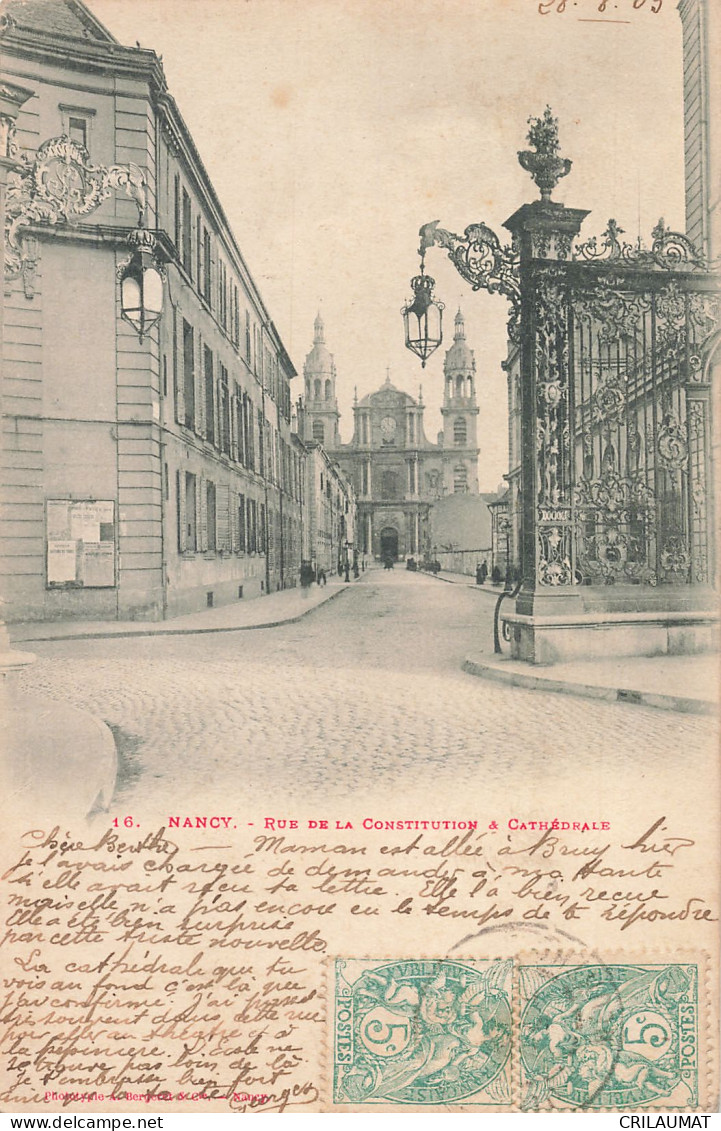 28.8.03
16. NANCY. - RUE DE LA CONSTITUTION & CATHÉDRALE
Chère Berthe — Maman est allée à Bruy hier
je l'avais chargée de demander à ma tante
si elle avait reçu ta lettre. Elle l'a bien reçue
mais elle n'a pas encore eu le temps de te répondre
Elle a été bien surprise
par cette triste nouvelle.
La cathédrale que tu
vois au fond c'est là que
j'ai confirmé. J'ai passé
souvent dans cette rue
pour aller au théâtre et à
la pépinière. L'école ne
se trouve pas loin de là
Je t'embrasse bien fort
ainsi que
Georges
Phototypie A. Bergeret & Cie. - Nancy
POSTES
5
5
POSTES
CRILAUMAT